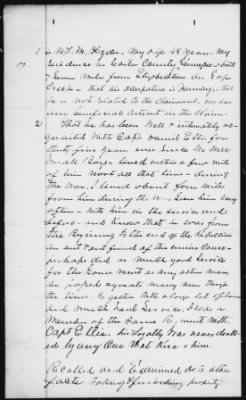 1 is W. F. M. Hyder - My age 48 years - My
residence in Carter County, Tennessee - about
7 miles from Elizabethton on Gap
Creek - that his occupation is farming, that
he is not related to the Claimant, nor has
any beneficial interest in the Claim.
2 That he has been Well & intimately ac
quainted With Capt Daniel Ellis for
thirty five years ever Since We Were
Small Boys - lived within a few miles
of him most all that time - during
the War, I lived about four miles
from him during the War. Seen him very
often - With him in the service and
and knows that is loyal from
the Beginning to the end of the Rebellion
an ant & friend of the union Cause
he did as much good Service
for the Government as any other man
he piloted a great many men through
the lines to gather With a large lot of horses
and much hard Service. I was a
Member of the Same Regiment With
Capt Ellis. his Loyalty Was never doubt
ed by any One that Knew him.
Recalled and Examined as to other
facts property